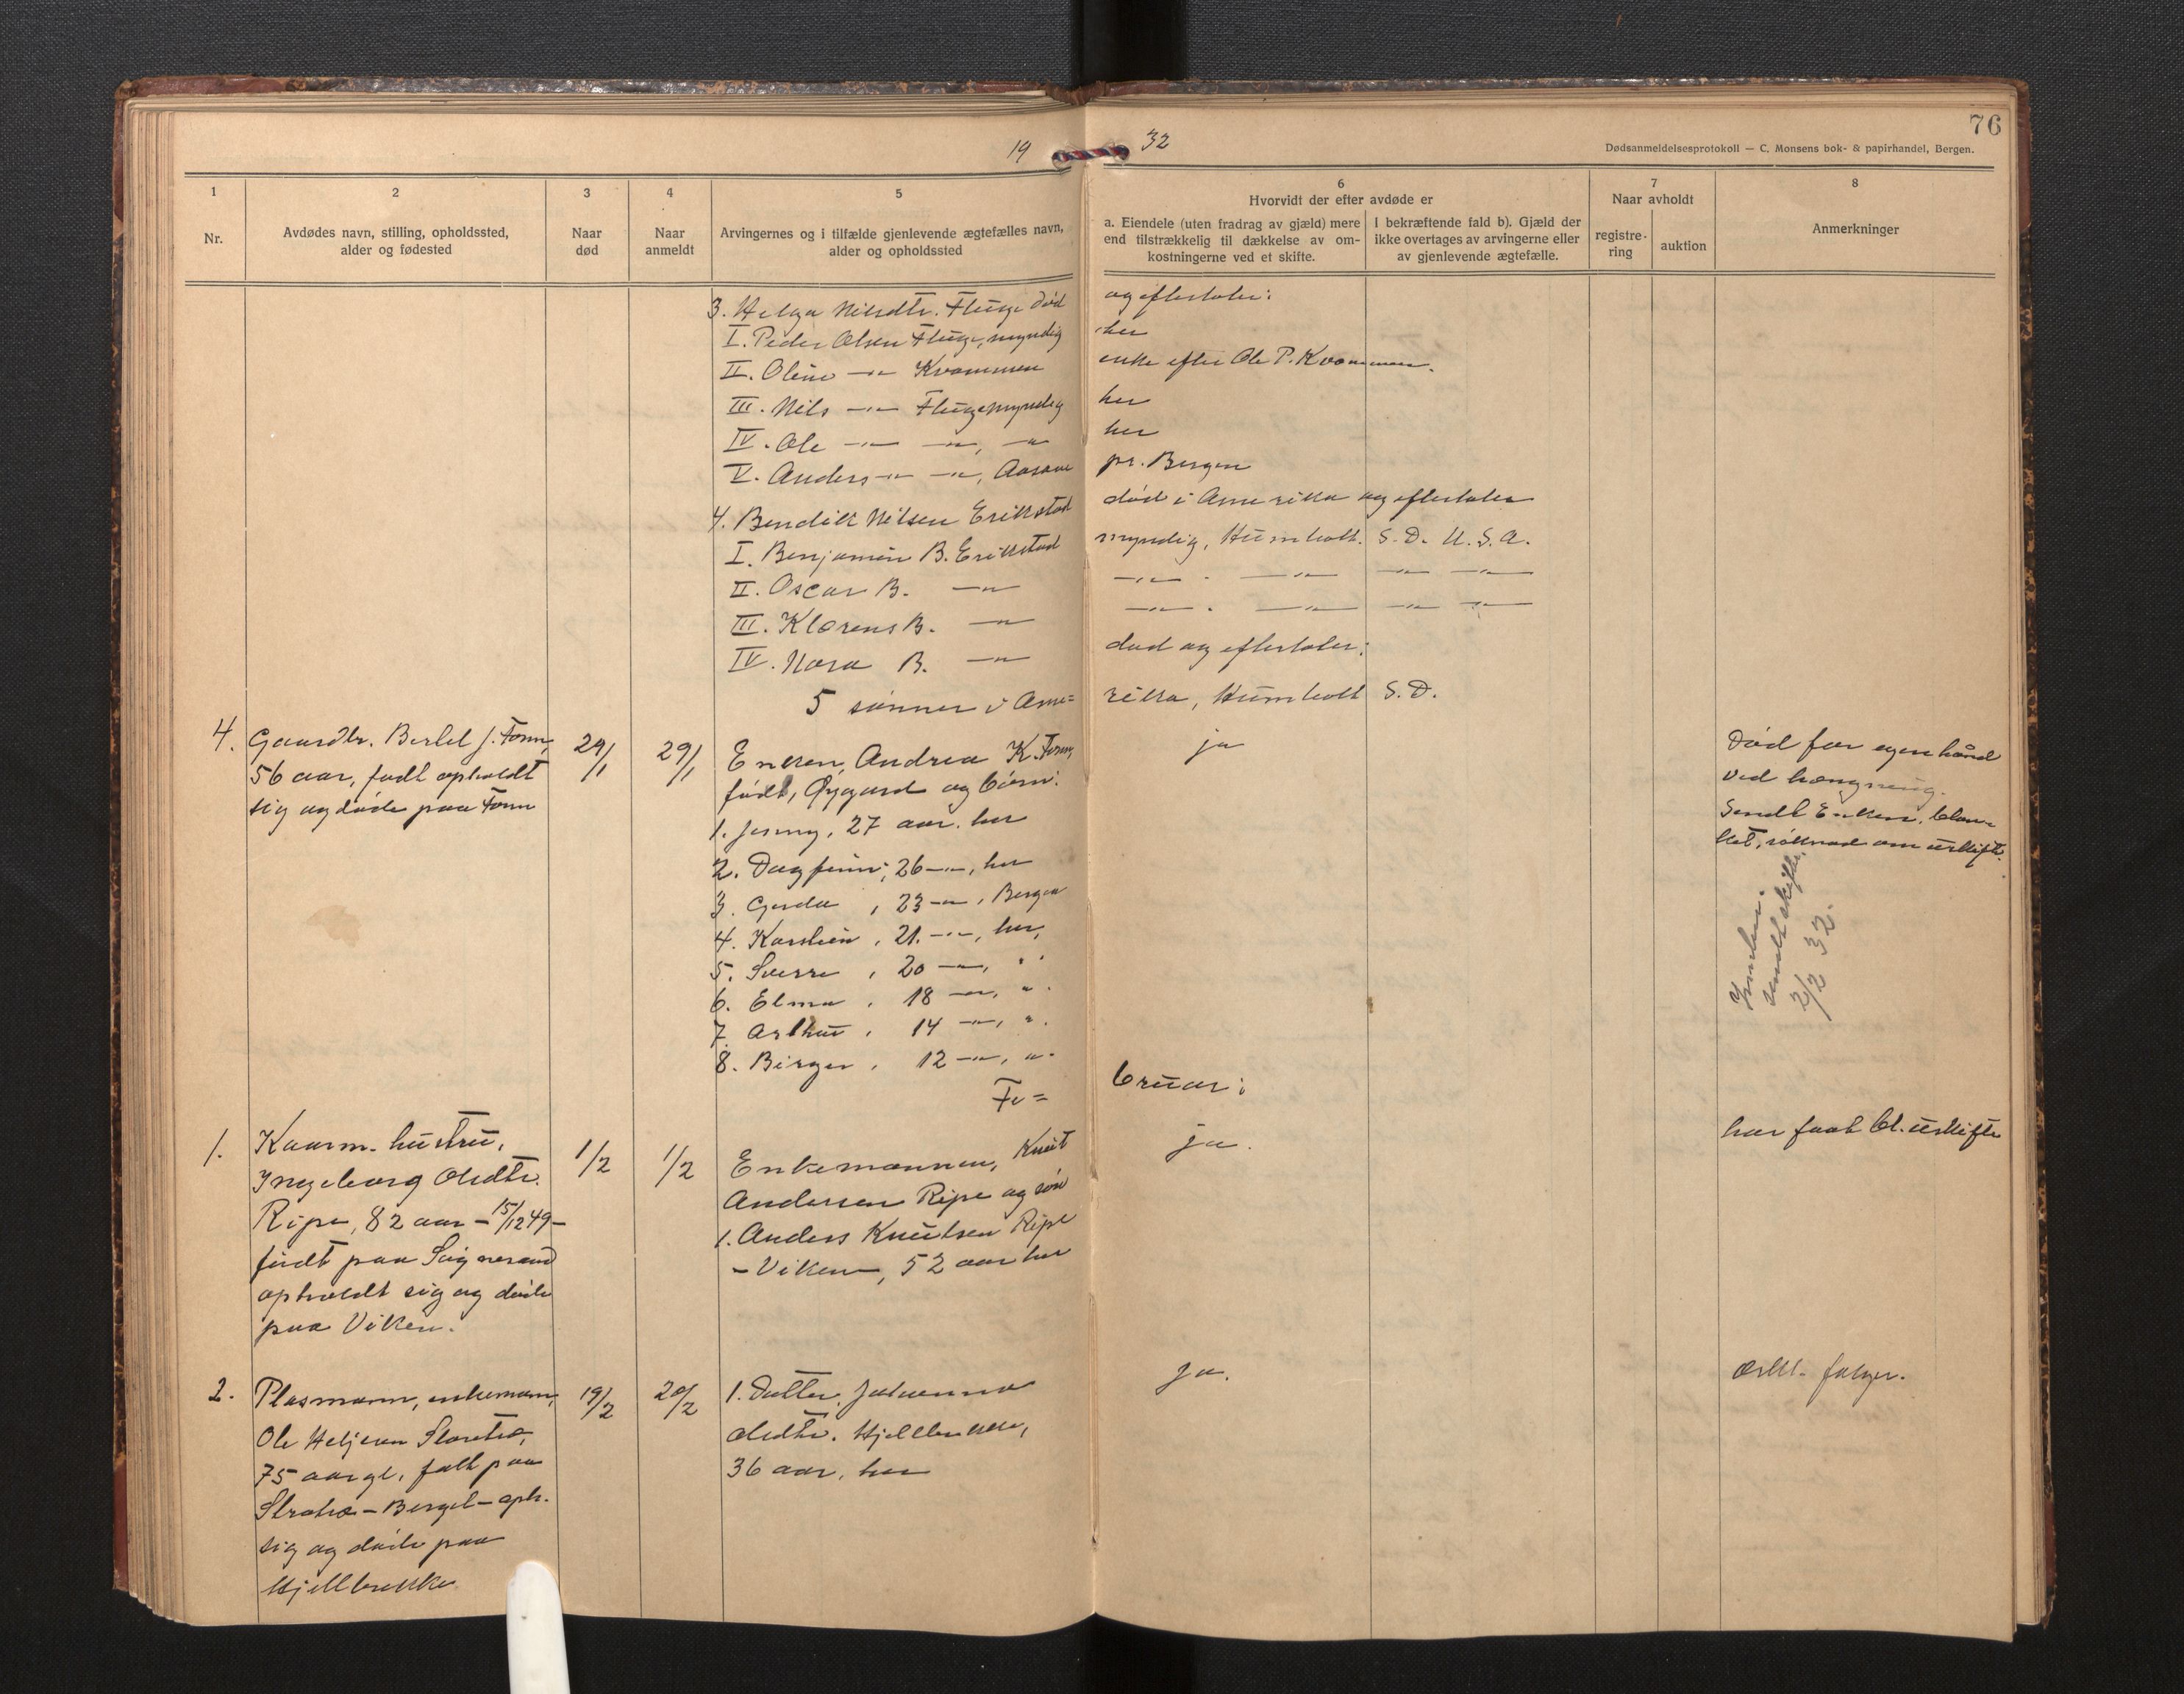 19 32
76
Dødsanmeldelsesprotokoll — C. Monsens bok- & papirhandel, Bergen.
1
Nr.
2
Avdødes navn, stilling, opholdssted,
alder og fødested
3
Naar
død
4
Naar
anmeldt
5
Arvingernes og i tilfælde gjenlevende ægtefælles navn,
alder og opholdssted
6
Hvorvidt der efter avdøde er
a. Eiendele (uten fradrag av gjæld) mere
end tilstrækkelig til dækkelse av om-
kostningerne ved et skifte.
I bekræftende fald b). Gjæld der
ikke overtages av arvingerne eller
av gjenlevende ægtefælle.
7
Naar avholdt
registre-
ring
auktion
8
Anmerkninger
3. Helga Nilsdtr. Fluge død og efterlater:
I. Peder Olsen Fluge, myndig her
II. Oline —"— Kvammen enke efter Ole P. Kvammen.
III. Nils —"— Fluge myndig her
IV. Ole —"— —"—, —"— her
V. Anders —"— —"—, Aasane pr. Bergen
4. Bendik Nilsen Erikstad død i Amerika og efterlater
I. Benjamin B. Erikstad myndig, Humbolt. S. D. U. S. A.
II. Oscar B. —"— —"— . —"— —"— —"—
III. Klarens B. —"— —"— . —"— —"— —"—
IV. Nora B. —"— død og efterlater:
5 sønner i Ame= rika, Humbolt S. D.
4. Gaardbr. Bertel J. Fonn,
56 aar, født opholdt
sig og døde paa Fonn
29/1
29/1
Enken, Andrea K. Fonn,
født, Øygard og børn:
1. Jenny, 27 aar. her
2. Dagfinn, 26 —"—, her
3. Gerda, 23 —"—, Bergen
4. Karstein, 21. —"—, her,
5. Sverre, 20 —"—, "
6. Elma, 18 —"—, " .
7. Arthur, 14 —"—, " .
8. Birger, 12 —"—, " .
ja
Død for egen hånd
ved hængning.
Sendt Enken, blan-
ket, søknad om uskifte.
sendt skifte
2/2 32.
Fe= bruar:
1. Kaarm. hustru,
Ingeborg Olsdtr.
Ripe, 82 aar – 15/12 49 –
født paa
opholdt sig og døde
paa Viken.
1/2
1/2
Enkemannen, Knut
Andersen Ripe og søn
1. Anders Knutsen Ripe
– Viken –, 52 aar her
ja.
har faat bl. uskifte
2. Plasmann, enkemann,
Ole Heljesen
75 aar gl. født paa
– Berget – oph.
sig og døde paa
Hjellbrekke
19/2
20/2
1. Datter, Johanna
Olsdtr. Hjellbrekke,
36 aar, her
ja.
følger.